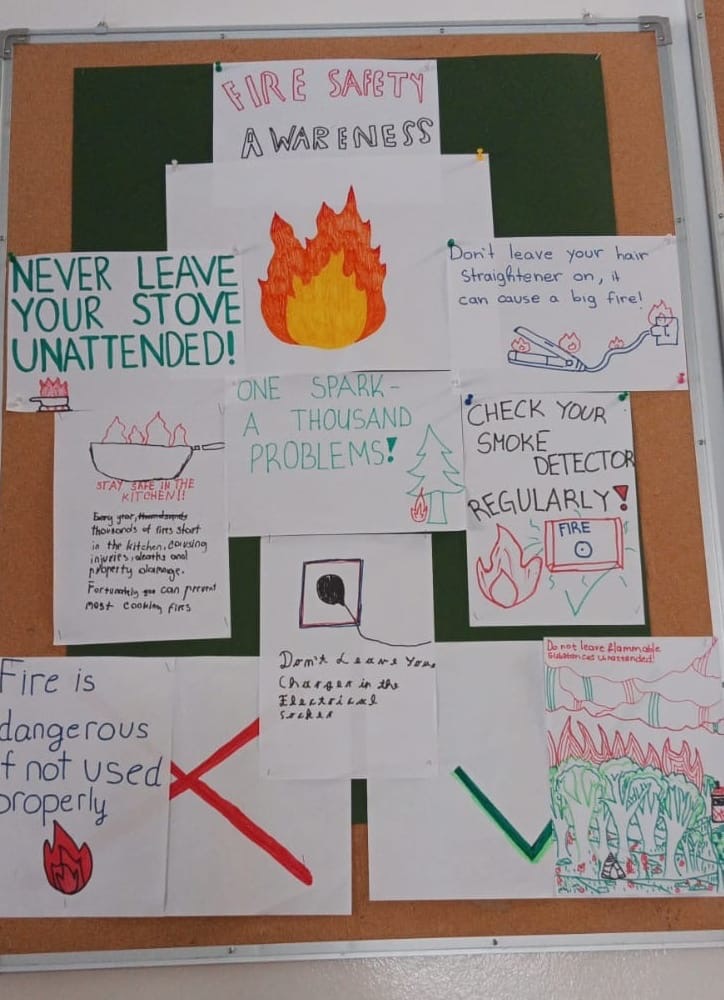 FIRE SAFETY
AWARENESS
NEVER LEAVE
YOUR STOVE
UNATTENDED!
Don't leave your hair
straightener on, it
can cause a big fire!
ONE SPARK-
A THOUSAND
PROBLEMS!
CHECK YOUR
SMOKE
DETECTOR
REGULARLY!
FIRE
STAY SAFE IN THE
KITCHEN!!
Every year,
thousands of fires start
in the kitchen, causing
injuries, deaths and
property damage.
Fortunately you can prevent
most cooking fires
Don't Leave Your
Charger in the
Electrical
Socket
Fire is
dangerous
if not used
properly
Do not leave flammable
Substances unattended!